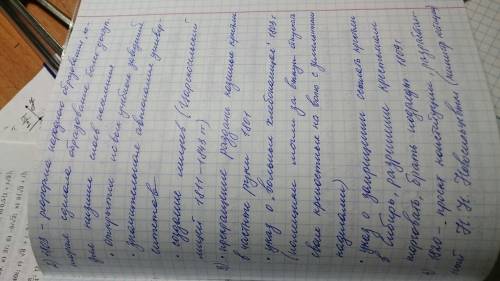 1) 1803 - реформа народного образования, ко-
торая сделала образование более доступ.
для низших слоев населения
• открытие новых учебных заведений
• значительная автономия универ-
ситетов
• создание лицеев (Царскосельский
лицей 1811-1843 гг)
3) • прекращение раздачи казённых крестьян
в частные руки 1801
• указ о „вольных хлебопашцах" 1803 г
(помещики могли за выкуп отпускать
своих крепостных на волю с земельными
наделами)
• указ о запрещении ссылать крестьян
в Сибирь, разрешении крестьянам
торговать, брать подряды 1809 г
4) 1820 - проект конституции, разработан-
ный Н. Н. Новосильцевым